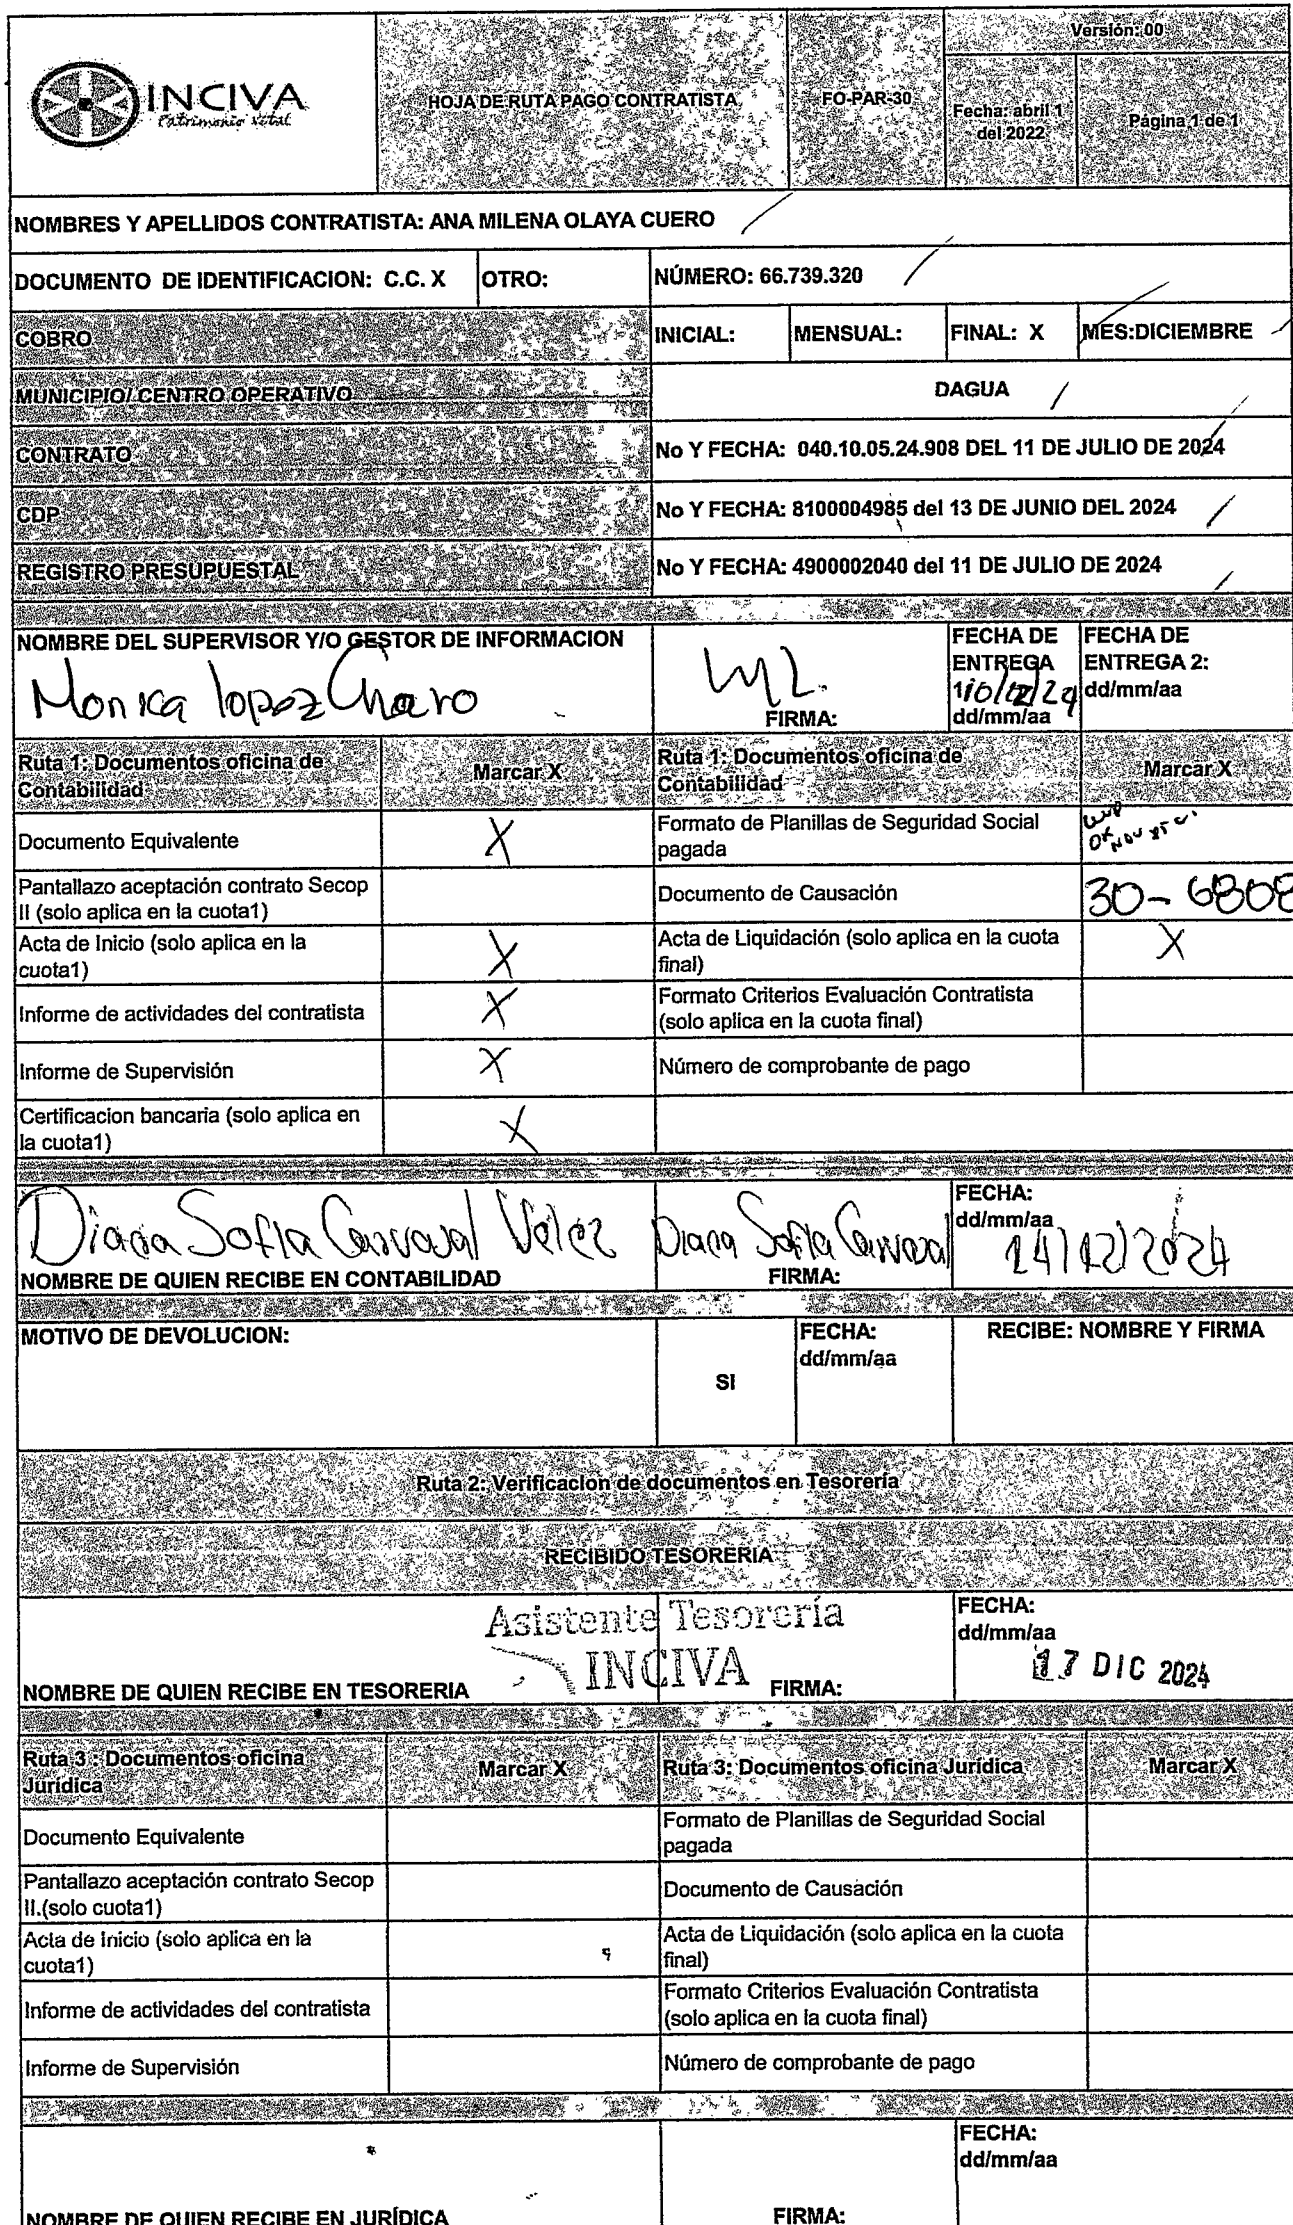 INCIVA
Patrimonio Vital
HOJA DE RUTA PAGO CONTRATISTA
FO-PAR-30
Versión: 00
Fecha: abril 1
del 2022
Página 1 de 1
NOMBRES Y APELLIDOS CONTRATISTA: ANA MILENA OLAYA CUERO
DOCUMENTO DE IDENTIFICACION: C.C. X
OTRO:
NÚMERO: 66.739.320
COBRO
INICIAL:
MENSUAL:
FINAL: X
MES:DICIEMBRE
MUNICIPIO/ CENTRO OPERATIVO
DAGUA
CONTRATO
No Y FECHA: 040.10.05.24.908 DEL 11 DE JULIO DE 2024
CDP
No Y FECHA: 8100004985 del 13 DE JUNIO DEL 2024
REGISTRO PRESUPUESTAL
No Y FECHA: 4900002040 del 11 DE JULIO DE 2024
NOMBRE DEL SUPERVISOR Y/O GESTOR DE INFORMACION
Monica lopez
FIRMA:
FECHA DE
ENTREGA
1 10/12/24
dd/mm/aa
FECHA DE
ENTREGA 2:
dd/mm/aa
Ruta 1: Documentos oficina de
Contabilidad
Marcar X
Ruta 1: Documentos oficina de
Contabilidad
Marcar X
Documento Equivalente
X
Formato de Planillas de Seguridad Social
pagada
OK
Pantallazo aceptación contrato Secop
II (solo aplica en la cuota1)
Documento de Causación
30-6808
Acta de Inicio (solo aplica en la
cuota1)
X
Acta de Liquidación (solo aplica en la cuota
final)
X
Informe de actividades del contratista
X
Formato Criterios Evaluación Contratista
(solo aplica en la cuota final)
Informe de Supervisión
X
Número de comprobante de pago
Certificacion bancaria (solo aplica en
la cuota1)
X
Diana Sofia Carvajal Velez
NOMBRE DE QUIEN RECIBE EN CONTABILIDAD
Diana Sofia Carvajal
FIRMA:
FECHA:
dd/mm/aa
14/12/2024
MOTIVO DE DEVOLUCION:
SI
FECHA:
dd/mm/aa
RECIBE: NOMBRE Y FIRMA
Ruta 2: Verificacion de documentos en Tesorería
RECIBIDO TESORERIA
Asistente Tesorería
INCIVA
NOMBRE DE QUIEN RECIBE EN TESORERIA
FIRMA:
FECHA:
dd/mm/aa
17 DIC 2024
Ruta 3 : Documentos oficina
Jurídica
Marcar X
Ruta 3: Documentos oficina Jurídica
Marcar X
Documento Equivalente
Formato de Planillas de Seguridad Social
pagada
Pantallazo aceptación contrato Secop
II.(solo cuota1)
Documento de Causación
Acta de Inicio (solo aplica en la
cuota1)
Acta de Liquidación (solo aplica en la cuota
final)
Informe de actividades del contratista
Formato Criterios Evaluación Contratista
(solo aplica en la cuota final)
Informe de Supervisión
Número de comprobante de pago
NOMBRE DE QUIEN RECIBE EN JURÍDICA
FIRMA:
FECHA:
dd/mm/aa